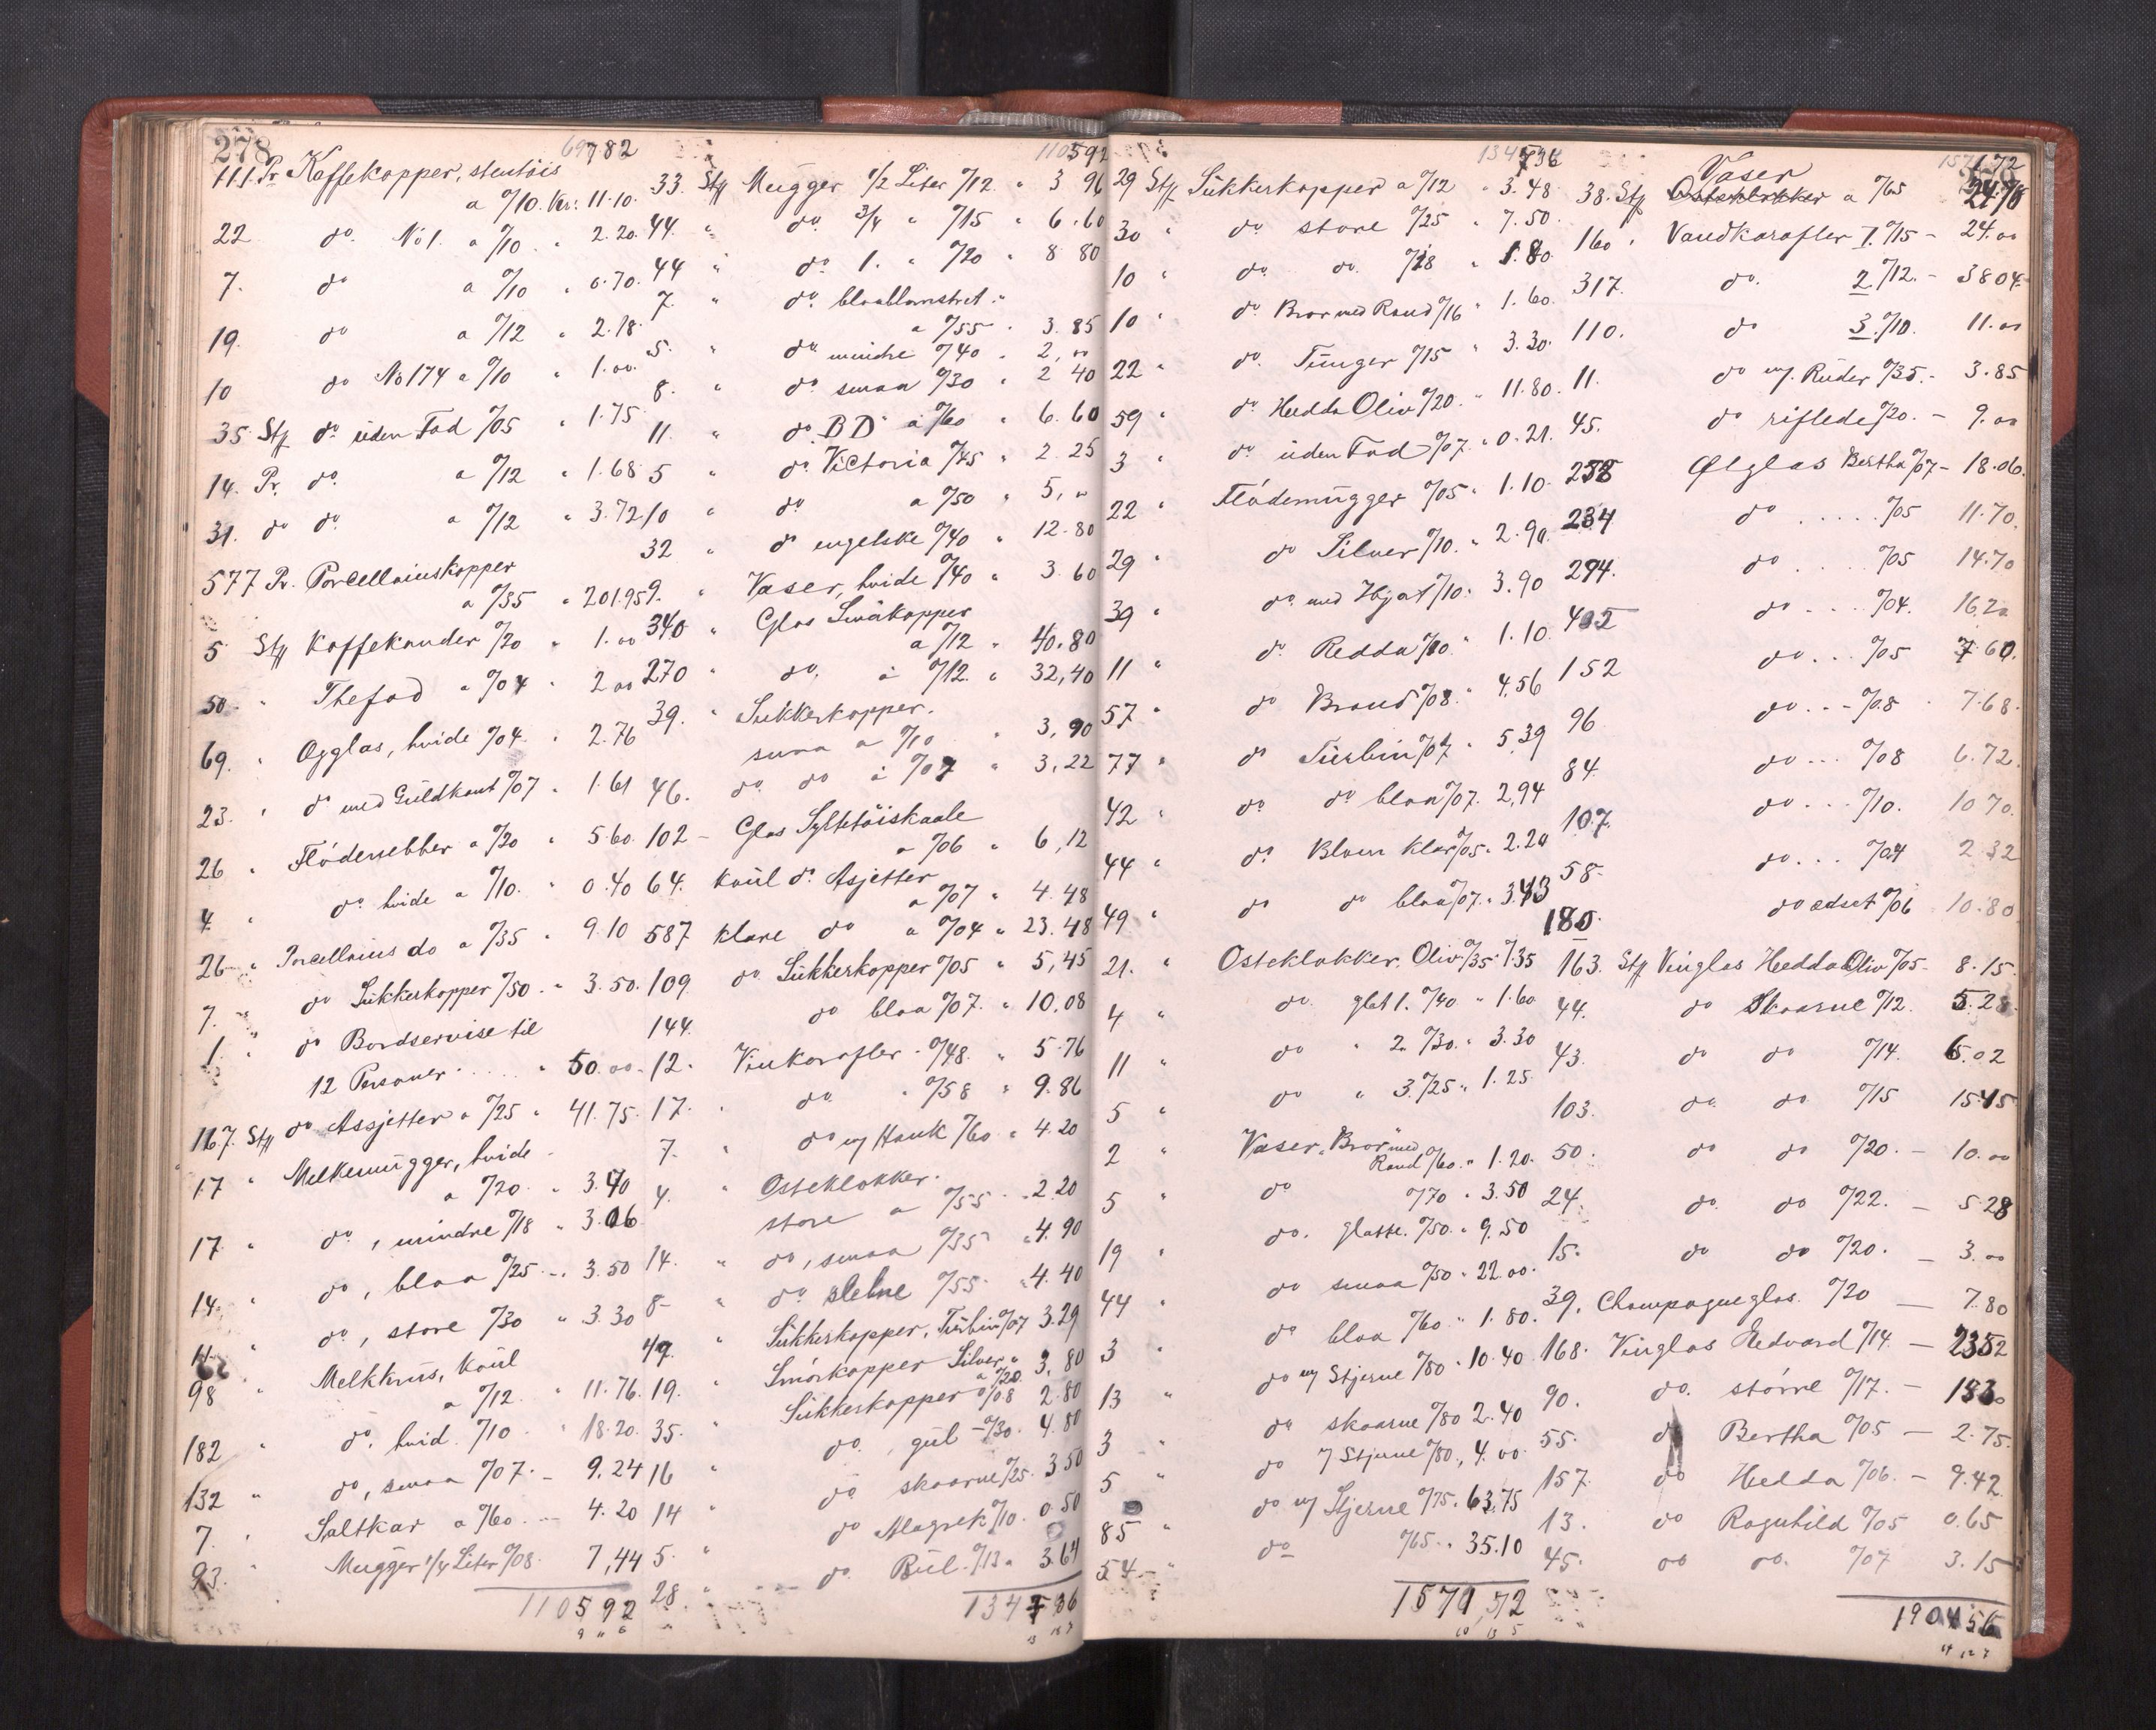 278
69782
111. Pr Kaffekopper, stentöis
a %10. Kr: 11.10.
22 do No 1. a %10 " 2.20.
7. do a %10 " 0.70.
19. do a %12 " 2.28.
10 do No 174 a %10 " 1.00.
35 Stk do üden Fad %05 " 1.75
14. Pr. do a %12 " 1.68
31. do do a %12 " 3.72
577 Pr. Porcellainskopper
a %35 " 201.95
5 Stk Kaffekander %20 " 1.00
50 " Thefad a %04 " 2.00
69. " Ogglas, hvide %04. " 2.76
23. " do med Güldkant %07 " 1.61
26 " Flödenebber a %20 " 5.60
4. " do hvide a %10. " 0.40
26 " Porcellains do a %35 " 9.10
7. " do Sükkerkopper %50. " 3.50.
1. " do Bordservise til
12 Personer . . . . " 50.00
167. Stk do Assjetter a %25 " 41.75.
17 " Melkemügger, hvide
a %20. " 3.40
17 " do, mindre %18 " 3.06
14. " do, blaa %25 " 3.50
11. " do, store %30 " 3.30
98 " Melkkrüs, Koül
a %12. " 11.76.
182 " do, hvid. %10 " 18.20.
132 " do, smaa %07. - 9.24
7. " Saltkar a %60. - 4.20
93. " Mügger 1/4 Liter %08. 7,44
110592
110592
33. Stk Mügger 1/2 Liter %12. " 3 96
44. " do 3/4 " %15 " 6.60
44 " do 1. " %20 " 8 80
7. " do blaablomstret "
a %55 " 3.85
5. " do mindre %40 " 2,00
8. " do smaa %30 " 2 40
11. " do BD a %60 " 6.60
5 " do Victoria %45 " 2.25
10 " do a %50 " 5,00
32 " do engelske %40 " 12.80
9. " Vaser, hvide %40 " 3.60
340 " Glas Smäkopper
a %12 " 40.80
270 " do, a %12. " 32,40
39. " Sukkerkopper.
smaa a %10 " 3,90
46. do do a %07 " 3,22
102 - Glas Syltetöiskaale
a %06 " 6,12
64. Koül do Asjetter
a %07 " 4.48
587 klare do a %04 " 23.48
109 do Sükkerkopper %05 " 5,45
144. do blaa %07. " 10,08
12. Vinkarafler. %48. " 5.76
17. " do " %58 " 9.86
7. " do m/ Hank %60 " 4.20
4. " Osteklokker.
store a %55 " 2.20
14. " do, smaa %35 " 4.90
8 - " do slebne %55 " 4.40
47. " Sükkerkopper, Türbin %07 3.29
19. " Smörkopper Silver "
a %20. 3,80
35. " Sükkerkopper a %08 2.80
16 " do, gül - %30. 4.80
14 " do skaarne %25. 3 50
5. " do Magrek %10. 0.50
28 " do Bül. %13 " 3.64
134736
134736
29 Stk Sükkerkopper a %12 " 3.48
30 " do store %25 " 7.50.
10 " do do %18 " 1.80.
10 " do Bror med Rand %16 " 1.60.
22 " do Tünger %15 " 3.30.
59 " do Hedda Oliv %20. " 11.80.
3 " do üden Fad %07. " 0.21.
22 " Flödemügger %05 " 1.10.
29 " do Silver %10. " 2.90.
39 " do med Hjort %10. 3.90
11 " do Redda %10. " 1.10.
57 " do Brand %08. " 4.56
77 " do Türbin %07 " 5,39
42 " do do blaa %07. 2,94
44 " do Blom klar %05. 2.20
49 " do do blaa %07. " 3.43
21. " Osteklokker. Oliv %35 7.35
4 " do glat 1. %40. " 1.60
11 " do " 2. %30. " 3.30
5 " do " 3. %25 " 1.25.
2 " Vaser "Bror" med
Rand %60. " 1.20.
5 " do %70 " 3.50
19 " do. glatte. %50. " 9.50
44 " do smaa %50 " 22.00.
3 " do blaa %60 " 1.80.
13 " do m/ Stjerne %80 " 10.40
3 " do skaarne %80 2.40
5 " do 7 Stjerne %80., 4.00.
85 " do m/ Stjerne %75 " 63.75
54 - " do %65 " 35.10
157172
157172
Vaser
38. Stk Osteklokker a %65 24.70
160 " Vandkarafler 1. %15 - 24.00
317. do. 2. %12. - 38 04.
110. do 3. %10. 11.00
11. do m/. Rüder %35. - 3.85
45. do riflede %20. - 9.00
258 Ølglas Bertha %07 - 18.06.
234 do . . . . . %05 11.70.
294. do . . . . %05 14.70
405 do . . . %04. 16,20
152 do . . . %05 7 60.
96 do . . . %08 7.68.
84 do . . . %08 6.72.
107. do . . . %10. 10 70.
58 - do . . . %04 2 32
180. do ædset %06 10.80
163. Stk Vinglas Hedda Oliv %05 - 8.15.
44. do Skaarne %12. 5.28.
43. do do %14. 6.02
103. do do %15 15.45
50. do do %20. - 10.00
24. do do %22. - 5.28
15. do do %20. - 3.00
39. Champagneglas. %20 - 7.80
168. Vinglas Hedvard %14. - 23.52
90. do. större %17. - 15.30
55. do Bertha %05 - 2.75.
157. do Hedda %06. - 9.42
13. do Ragnhild %05 0.65
45. do do. %07 3.15
190456